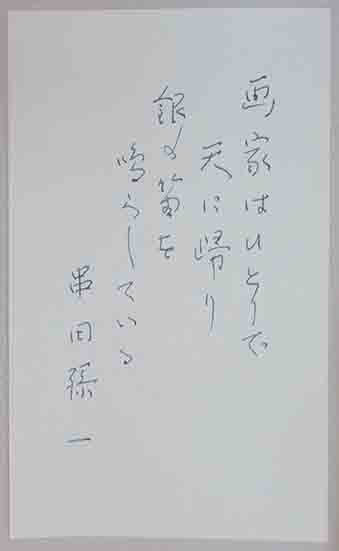 画家はひとりで
天に帰り
銀の笛を
鳴らしている
串田孫一